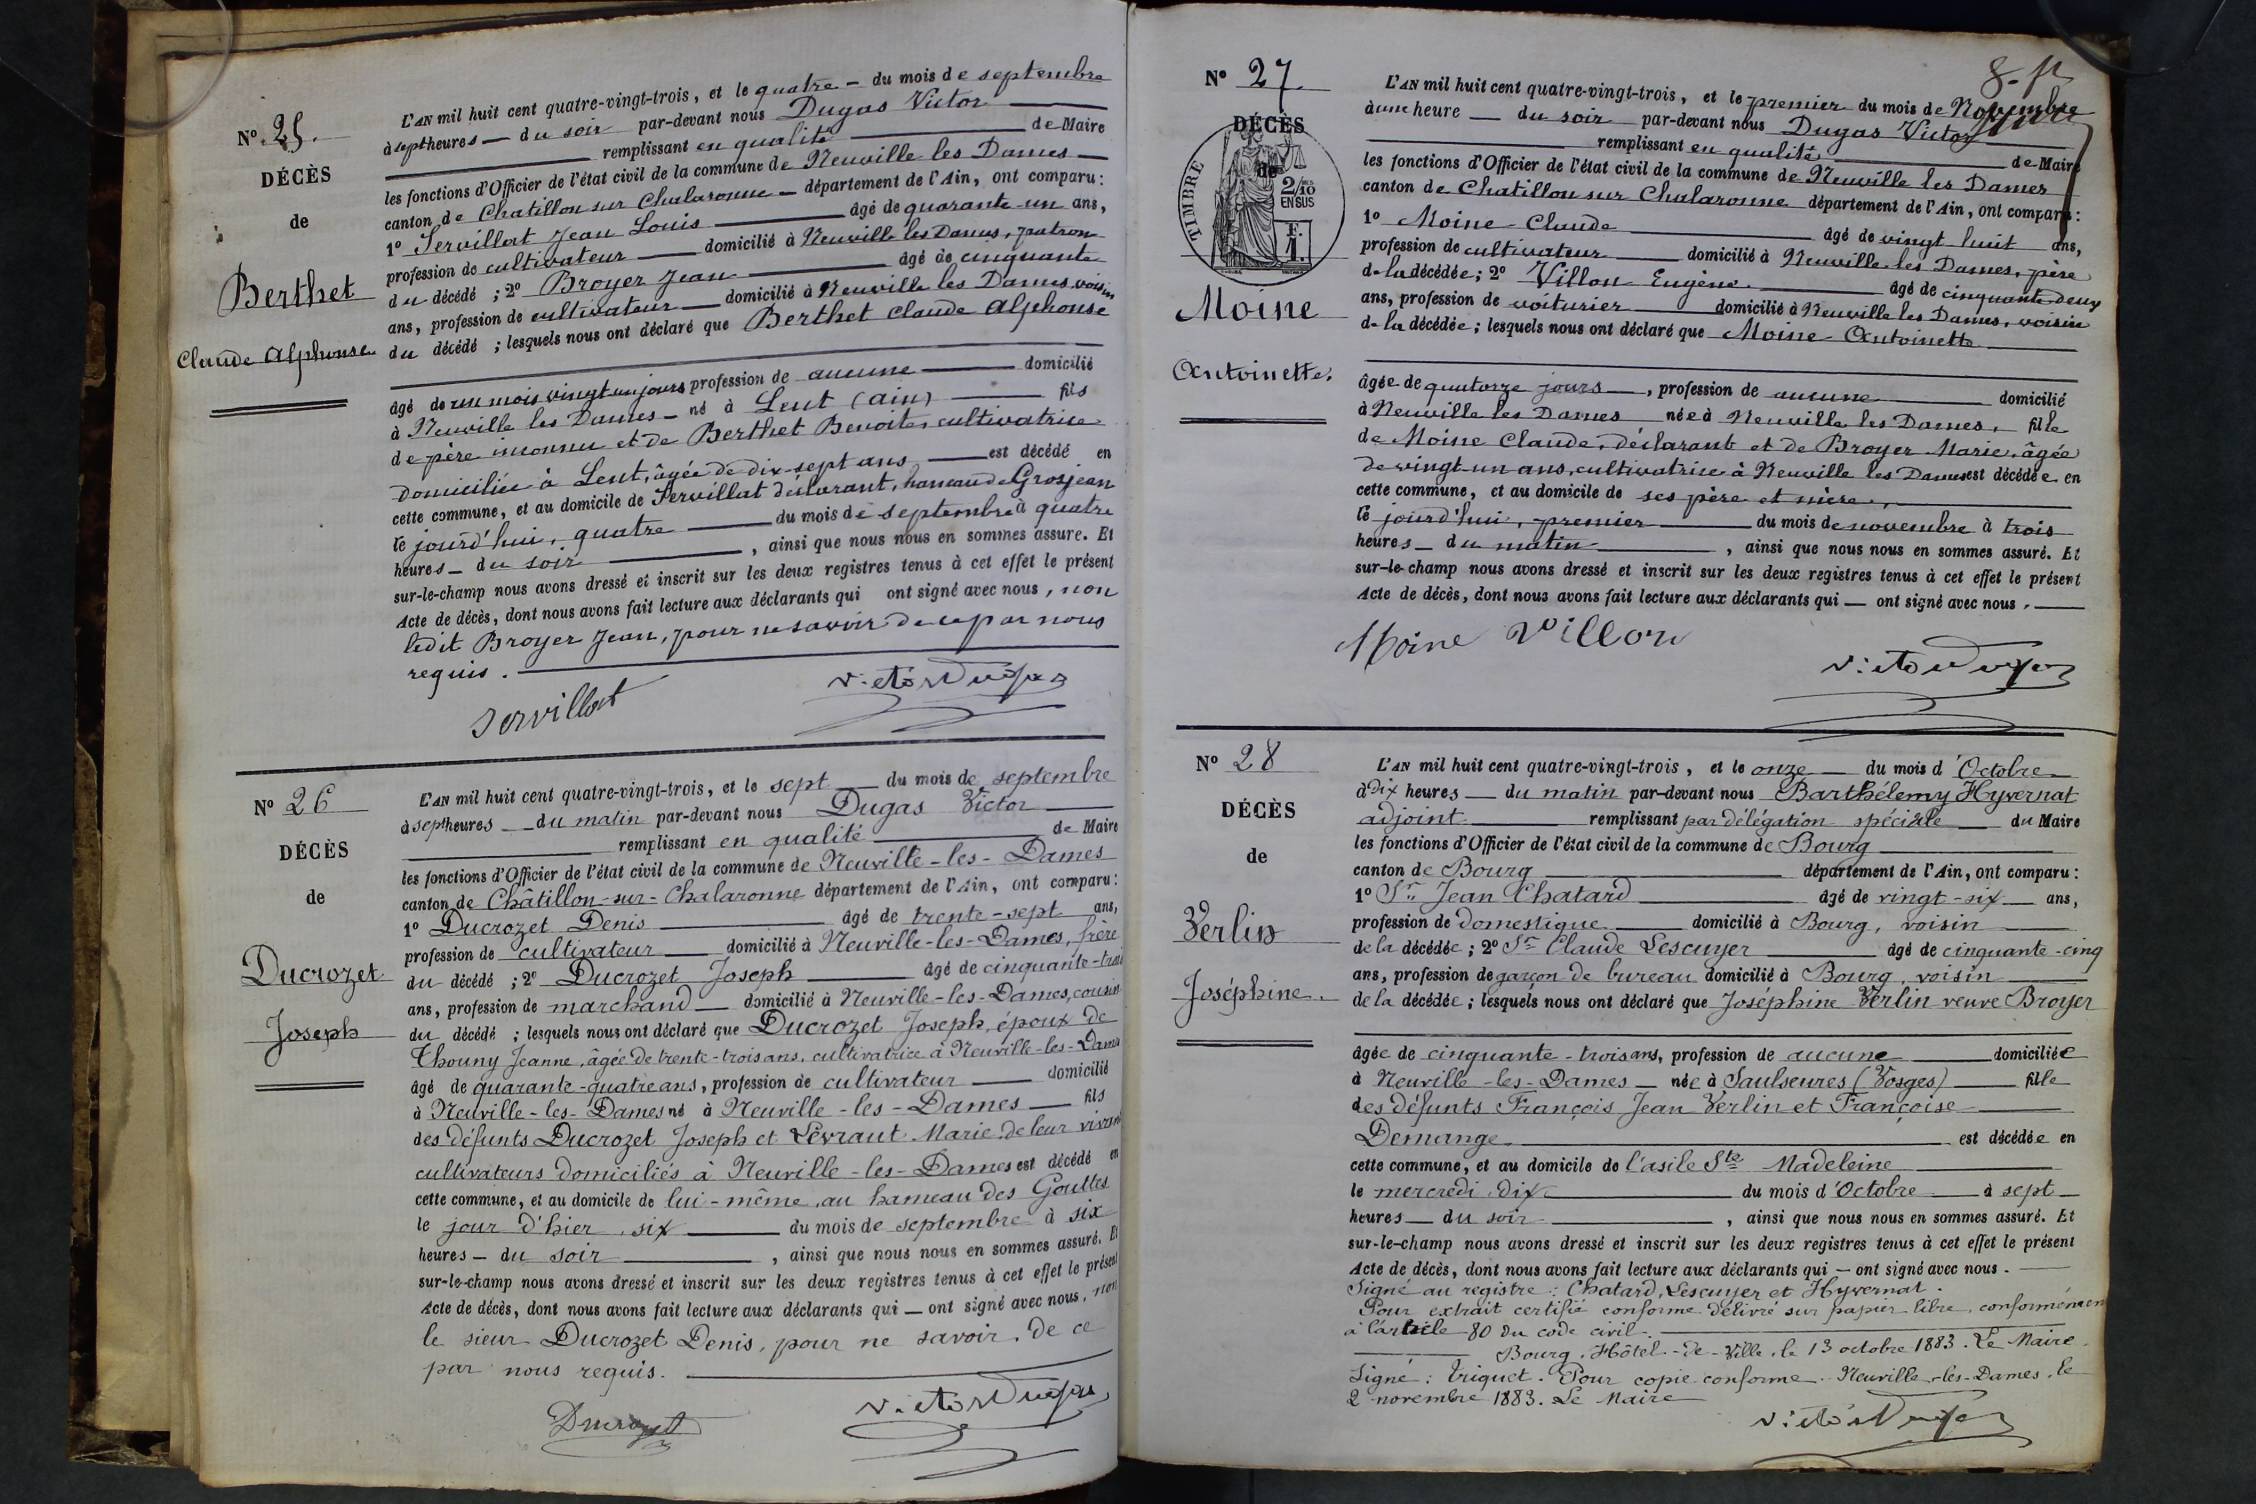 N° 25.
DÉCÈS
de
Berthet
Claude Alphonse
L'AN mil huit cent quatre-vingt-trois, et le quatre du mois de septembre
à sept heures du soir par-devant nous Dugas Victor
remplissant en qualité de Maire
les fonctions d'Officier de l'état civil de la commune de Neuville les Dames
canton de Chatillon sur Chalaronne département de l'Ain, ont comparu :
1° Servillat Jean Louis âgé de quarante-un ans,
profession de cultivateur domicilié à Neuville les Dames, patron
du décédé ; 2° Broyer Jean âgé de cinquante
ans, profession de cultivateur domicilié à Neuville les Dames, voisin
du décédé ; lesquels nous ont déclaré que Berthet Claude Alphonse
âgé de un mois vingt un jours profession de aucune domicilié
à Neuville les Dames né à Lent (ain) fils
de père inconnu et de Berthet Benoite, cultivatrice
domiciliée à Lent, âgée de dix-sept ans est décédé en
cette commune, et au domicile de Servillat déclarant, hameau de Grosjean
le jourd'hui, quatre du mois de septembre à quatre
heures du soir , ainsi que nous nous en sommes assuré. Et
sur-le-champ nous avons dressé et inscrit sur les deux registres tenus à cet effet le présent
Acte de décès, dont nous avons fait lecture aux déclarants qui ont signé avec nous, non
ledit Broyer Jean, pour ne savoir de ce par nous
requis.
Servillat Victor Dugas
N° 26
DÉCÈS
de
Ducrozet
Joseph
L'AN mil huit cent quatre-vingt-trois, et le sept du mois de septembre
à sept heures du matin par-devant nous Dugas Victor
remplissant en qualité de Maire
les fonctions d'Officier de l'état civil de la commune de Neuville-les-Dames
canton de Châtillon-sur-Chalaronne département de l'Ain, ont comparu :
1° Ducrozet Denis âgé de trente-sept ans,
profession de cultivateur domicilié à Neuville-les-Dames, frère
du décédé ; 2° Ducrozet Joseph âgé de cinquante-trois
ans, profession de marchand domicilié à Neuville-les-Dames, cousin
du décédé ; lesquels nous ont déclaré que Ducrozet Joseph, époux de
Thouny Jeanne, âgée de trente-trois ans, cultivatrice à Neuville-les-Dames
âgé de quarante-quatre ans, profession de cultivateur domicilié
à Neuville-les-Dames né à Neuville-les-Dames fils
des défunts Ducrozet Joseph et Levraut Marie, de leur vivant
cultivateurs domiciliés à Neuville-les-Dames est décédé en
cette commune, et au domicile de lui-même, au hameau des Gouttes
le jour d'hier, six du mois de septembre à six
heures du soir , ainsi que nous nous en sommes assuré. Et
sur-le-champ nous avons dressé et inscrit sur les deux registres tenus à cet effet le présent
Acte de décès, dont nous avons fait lecture aux déclarants qui ont signé avec nous, non
le sieur Ducrozet Denis, pour ne savoir, de ce
par nous requis.
Ducrozet Victor Dugas
N° 27.
DÉCÈS
de
TIMBRE
2/10
EN SUS
F.
1.
Moine
Antoinette.
L'AN mil huit cent quatre-vingt-trois, et le premier du mois de Novembre
à une heure du soir par-devant nous Dugas Victor
remplissant en qualité de Maire
les fonctions d'Officier de l'état civil de la commune de Neuville les Dames
canton de Chatillon sur Chalaronne département de l'Ain, ont comparu :
1° Moine Claude âgé de vingt huit ans,
profession de cultivateur domicilié à Neuville les Dames, père
de la décédée ; 2° Villon Eugène âgé de cinquante-deux
ans, profession de voiturier domicilié à Neuville les Dames, voisin
de la décédée ; lesquels nous ont déclaré que Moine Antoinette
âgée de quatorze jours , profession de aucune domicilié
à Neuville les Dames née à Neuville les Dames, fille
de Moine Claude, déclarant et de Broyer Marie, âgée
de vingt-un ans, cultivatrice à Neuville les Dames est décédée en
cette commune, et au domicile de ses père et mère,
le jourd'hui, premier du mois de novembre à trois
heures du matin , ainsi que nous nous en sommes assuré. Et
sur-le-champ nous avons dressé et inscrit sur les deux registres tenus à cet effet le présent
Acte de décès, dont nous avons fait lecture aux déclarants qui ont signé avec nous.
Moine Villon
Victor Dugas
N° 28
DÉCÈS
de
Verlin
Joséphine.
L'AN mil huit cent quatre-vingt-trois, et le onze du mois d'Octobre
à dix heures du matin par-devant nous Barthélemy Hyvernat
adjoint remplissant par délégation spéciale du Maire
les fonctions d'Officier de l'état civil de la commune de Bourg
canton de Bourg département de l'Ain, ont comparu :
1° Sr. Jean Chatard âgé de vingt-six ans,
profession de domestique domicilié à Bourg, voisin
de la décédée ; 2° Sr Claude Lescuyer âgé de cinquante-cinq
ans, profession de garçon de bureau domicilié à Bourg, voisin
de la décédée ; lesquels nous ont déclaré que Joséphine Verlin veuve Broyer
âgée de cinquante-trois ans, profession de aucune domiciliée
à Neuville-les-Dames née à Saulseures (Vosges) fille
des défunts François Jean Verlin et Françoise
Demange est décédée en
cette commune, et au domicile de l'asile Ste Madeleine
le mercredi dix du mois d'Octobre à sept
heures du soir , ainsi que nous nous en sommes assuré. Et
sur-le-champ nous avons dressé et inscrit sur les deux registres tenus à cet effet le présent
Acte de décès, dont nous avons fait lecture aux déclarants qui ont signé avec nous.
Signé au registre : Chatard, Lescuyer et Hyvernat.
Pour extrait certifié conforme délivré sur papier libre, conformément
à l'article 80 du code civil.
Bourg, Hôtel-de-Ville, le 13 octobre 1883. Le Maire
Signé : Triquet. Pour copie conforme. Neuville-les-Dames, le
2 novembre 1883. Le Maire
Victor Dugas